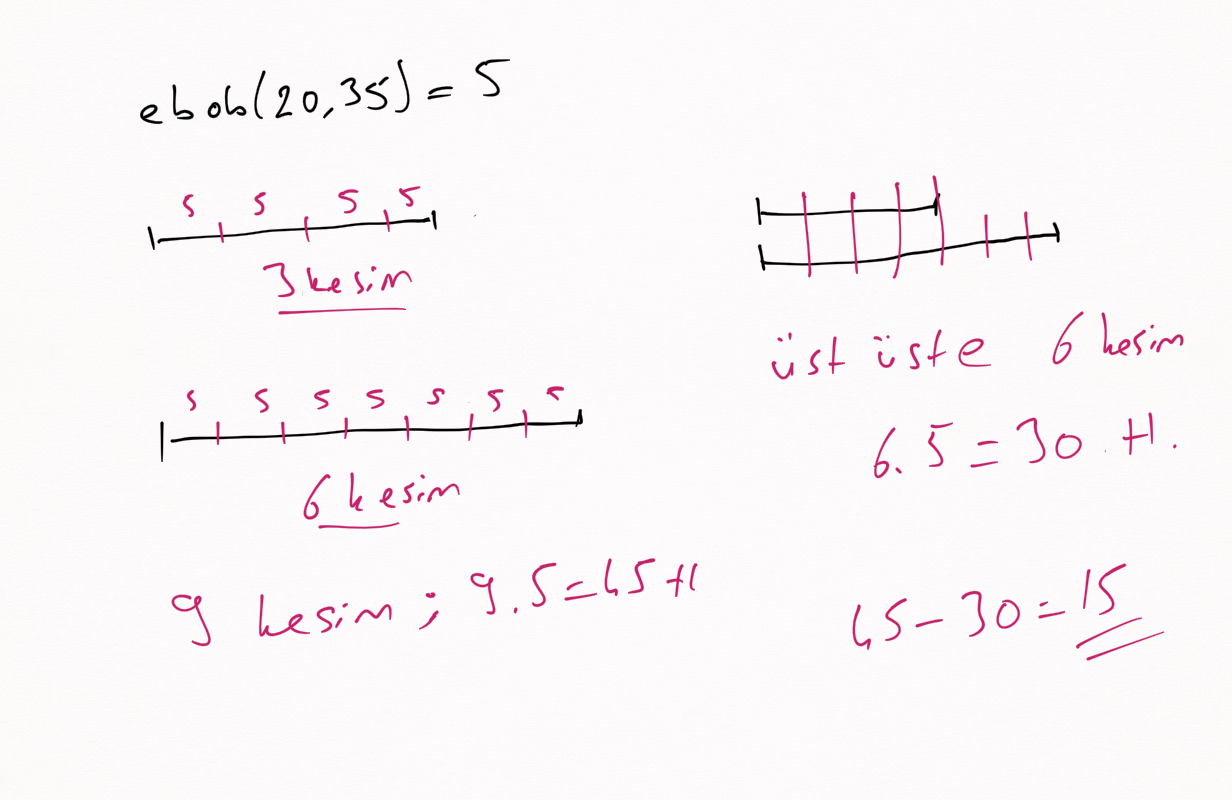 ebob(20,35) = 5
5 5 5 5
3 kesim
5 5 5 5 5 5 5
6 kesim
9 kesim ; 9.5=45 tl
üst üste 6 kesim
6.5 = 30 tl.
45 - 30 = 15